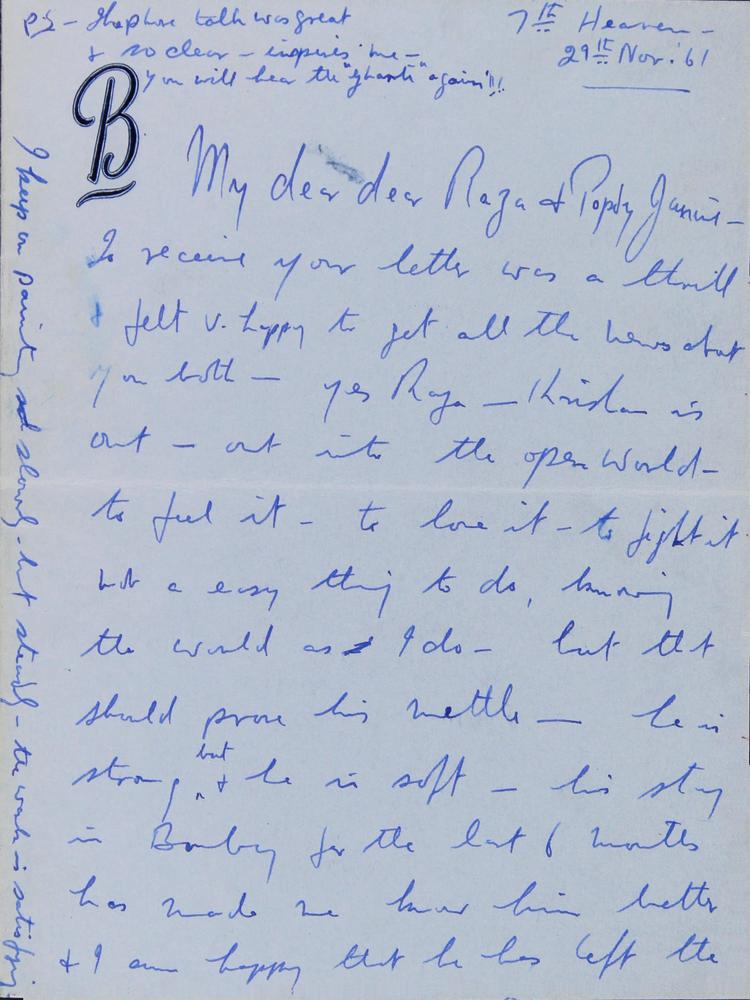 PS – The phone talk was great
& so clear – inspires me –
you will hear the "ghanti" again!!!
7th Heaven –
29th Nov. '61
B
My dear dear Raza & Janine –
To receive your letter was a thrill
& felt v. happy to get all the news about
you both – yes Raza – Krishan is
out – out into the open world –
to feel it – to love it – to fight it
not a easy thing to do, knowing
the world as I do – but that
should prove his mettle – he is
strong but & he is soft – his stay
in Bombay for the last 6 months
has made me know him better
& I am happy that he has left the
I keep on painting slowly – but steadily – the work is satisfying.